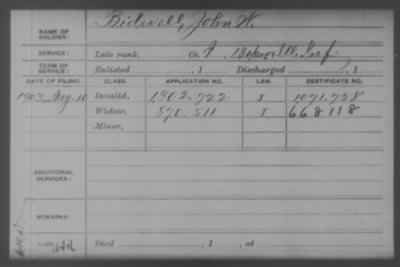 NAME OF SOLDIER: Bidwell, John W.
SERVICE: Late rank, Co. F, 13 Regt Ill. Inf.
TERM OF SERVICE: Enlisted , 1 Discharged , 1
DATE OF FILING. CLASS. APPLICATION NO. LAW. CERTIFICATE NO.
1903, Aug. 10 Invalid, 1.302.722 1071.758
Widow, 570.511 668118
Minor,
ADDITIONAL SERVICES:
REMARKS:
Died , 1 , at